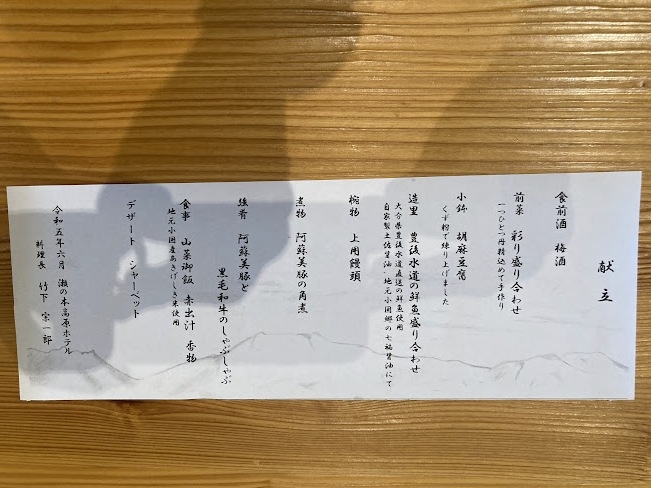 献立
食前酒 梅酒
前菜 彩り盛り合わせ
一つひとつ丹精込めて手作り
小鉢 胡麻豆腐
くず粉で練り上げました
造里 豊後水道の鮮魚盛り合わせ
大分県豊後水道直送の鮮魚使用
自家製土佐醤油・地元小国郷の七福醤油にて
椀物 上用饅頭
煮物 阿蘇美豚の角煮
強肴 阿蘇美豚と
黒毛和牛のしゃぶしゃぶ
食事 山菜御飯 赤出汁 香物
地元小国産あきげしき米使用
デザート シャーベット
令和五年六月 瀬の本高原ホテル
料理長 竹下 宗一郎